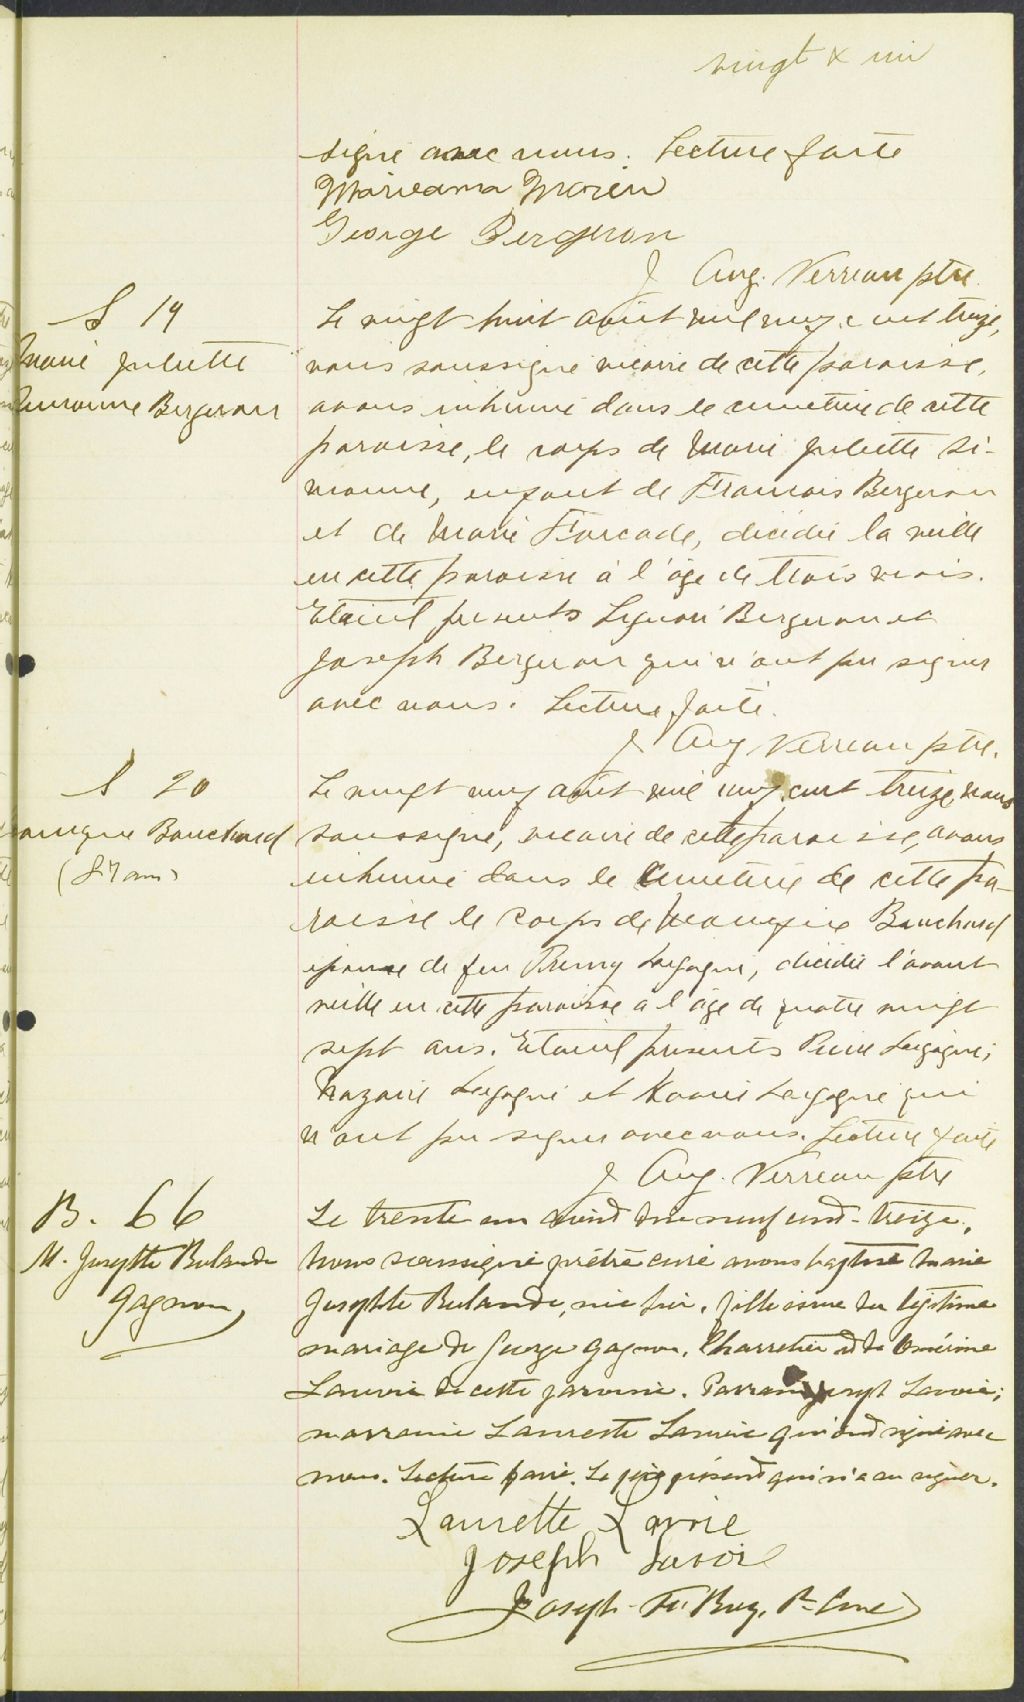 vingt & un
signé avec nous. Lecture faite
Marieanna Morin
George Bergeron
J Aug. Verreau ptre
S 19
Marie Juliette
Simonne Bergeron
Le vingt huit août mil neuf cent treize,
nous soussigné vicaire de cette paroisse,
avons inhumé dans le cimetière de cette
paroisse, le corps de Marie Juliette Si-
monne, enfant de Francois Bergeron
et de Marie Fourcade, décédée la veille
en cette paroisse à l'âge de trois mois.
Etaient présents Liguori Bergeron et
Joseph Bergeron qui n'ont pu signer
avec nous. Lecture faite.
J Aug Verreau ptre.
S 20
Bouchard
(87 ans)
Le vingt neuf août mil neuf cent treize, nous
soussigné, vicaire de cette paroisse, avons
inhumé dans le cimetière de cette pa-
roisse le corps de Bouchard
épouse de feu Lagagné, décédée l'avant
veille en cette paroisse à l'âge de quatre vingt
sept ans. Etaient présents Pierre Lagagné;
Nazaire Lagagné et Xavier Lagagné qui
n'ont pu signer avec nous. Lecture faite
J Aug. Verreau ptre
B. 66
M. Josephte
Gagnon
Le trente un août neuf cent-treize,
Nous soussigné prêtre curé avons baptisé Marie
Josephte née hier, fille issue du légitime
mariage de George Gagnon, Charretier et de
Lavoie de cette paroisse. Parrain Joseph Lavoie;
marraine Laurette Lavoie qui ont signé avec
nous. Lecture faite. Le père présent qui n'a su signer.
Laurette Lavoie
Joseph Lavoie
Joseph Ptre Curé